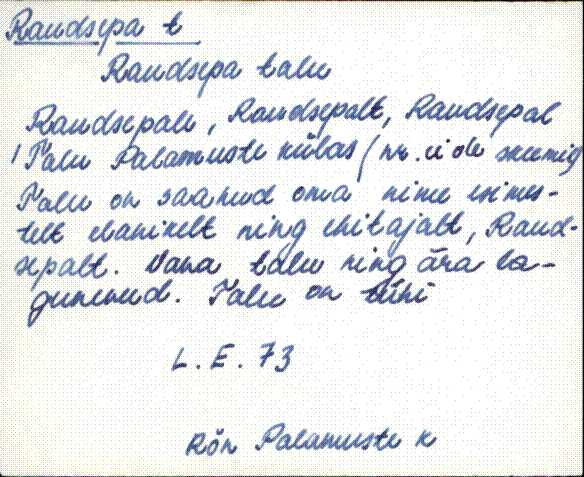 Raudsepa t
Raudsepa talu
Raudsepale, Raudsepalt, Raudsepal
Talu Palamuste külas (nr. ei ole skeemig
Talu on saanud oma nime esimes-
telt elanikelt ning ehitajalt, Raud-
sepalt. Vana talu ning ära la-
gunenud. Talu on tühi
L. E. 73
Rõn Palamuste k